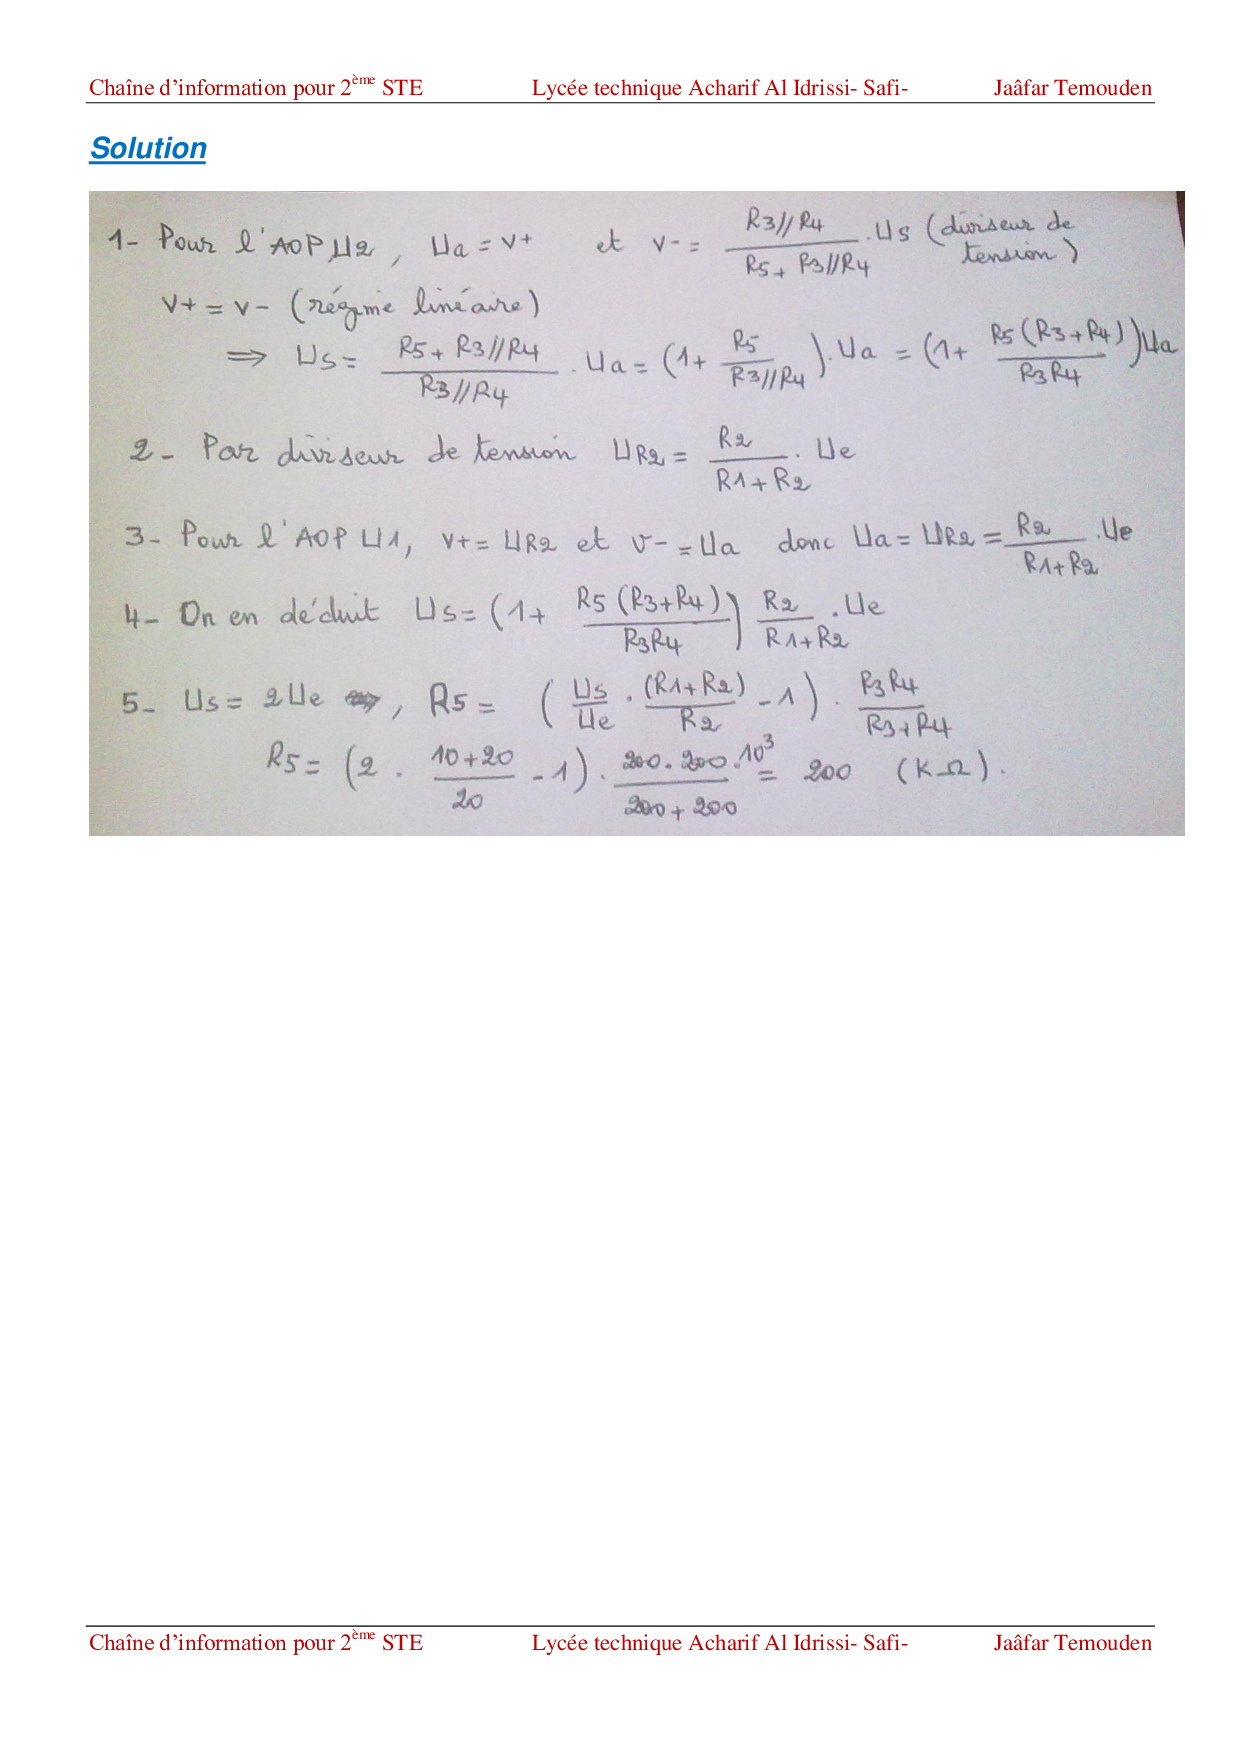 Chaîne d'information pour 2ème STE Lycée technique Acharif Al Idrissi- Safi- Jaâfar Temouden
Solution
1- Pour l'AOP U2, Ua = V+ et V- = R3//R4 / (R5 + R3//R4) . Us (diviseur de tension)
V+ = V- (régime linéaire)
⇒ Us = (R5 + R3//R4) / (R3//R4) . Ua = (1 + R5 / (R3//R4)) . Ua = (1 + R5(R3+R4) / R3R4) Ua
2- Par diviseur de tension UR2 = R2 / (R1+R2) . Ue
3- Pour l'AOP U1, V+ = UR2 et V- = Ua donc Ua = UR2 = R2 / (R1+R2) . Ue
4- On en déduit Us = (1 + R5(R3+R4) / R3R4) R2 / (R1+R2) . Ue
5- Us = 2Ue , R5 = (Us/Ue . (R1+R2) / R2 - 1) . R3R4 / (R3+R4)
R5 = (2 . (10+20) / 20 - 1) . 200 . 200 . 10³ / (200+200) = 200 (KΩ).
Chaîne d'information pour 2ème STE Lycée technique Acharif Al Idrissi- Safi- Jaâfar Temouden